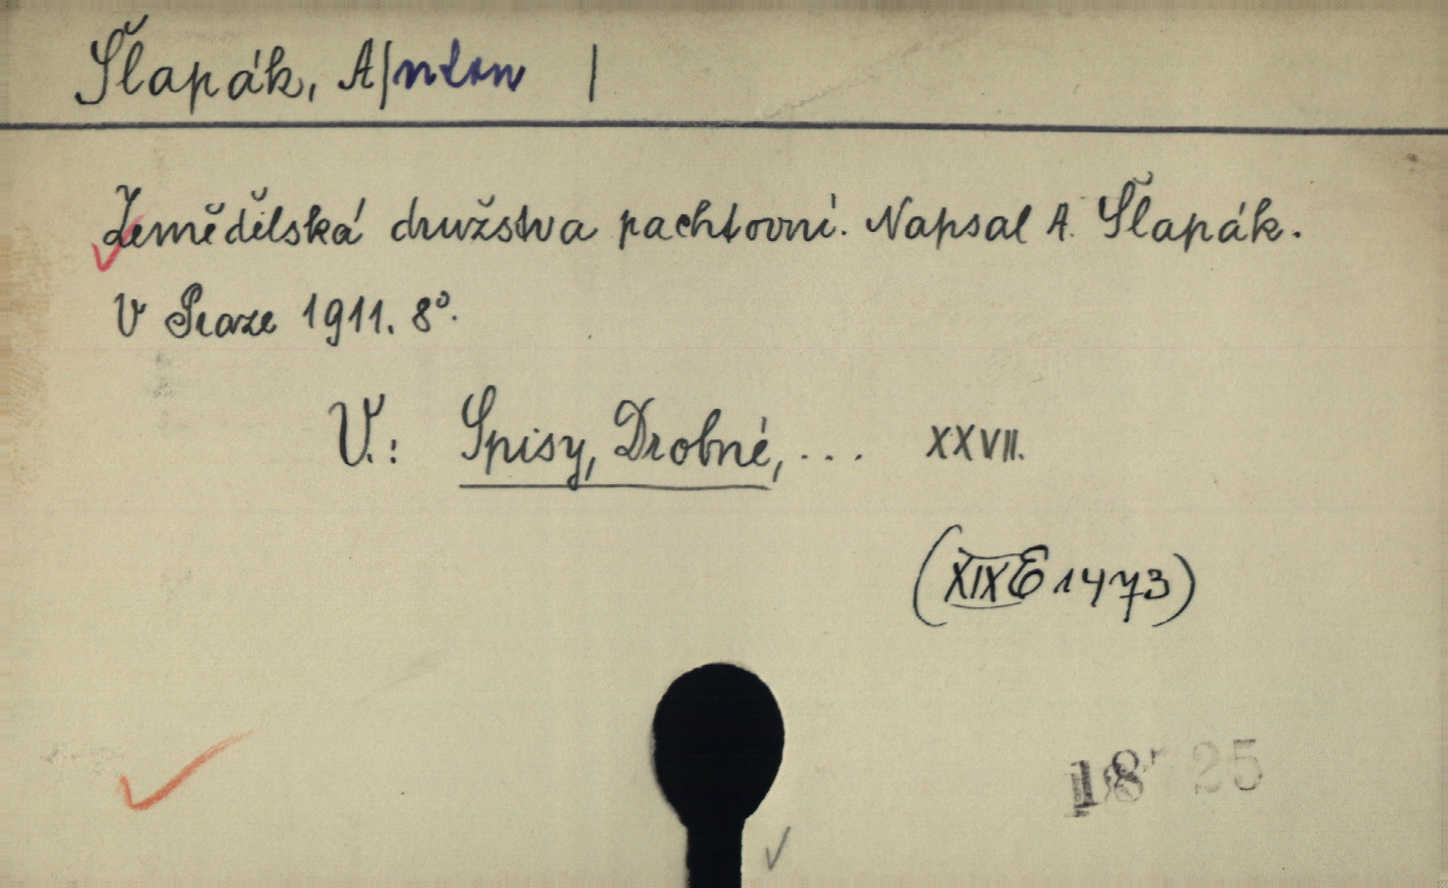 Šlapák, A|nton |
Zemědělská družstva pachtovní. Napsal A. Šlapák.
V Praze 1911. 8°.
V.: Spisy, Drobné, ... XXVII.
(XIX E 1473)